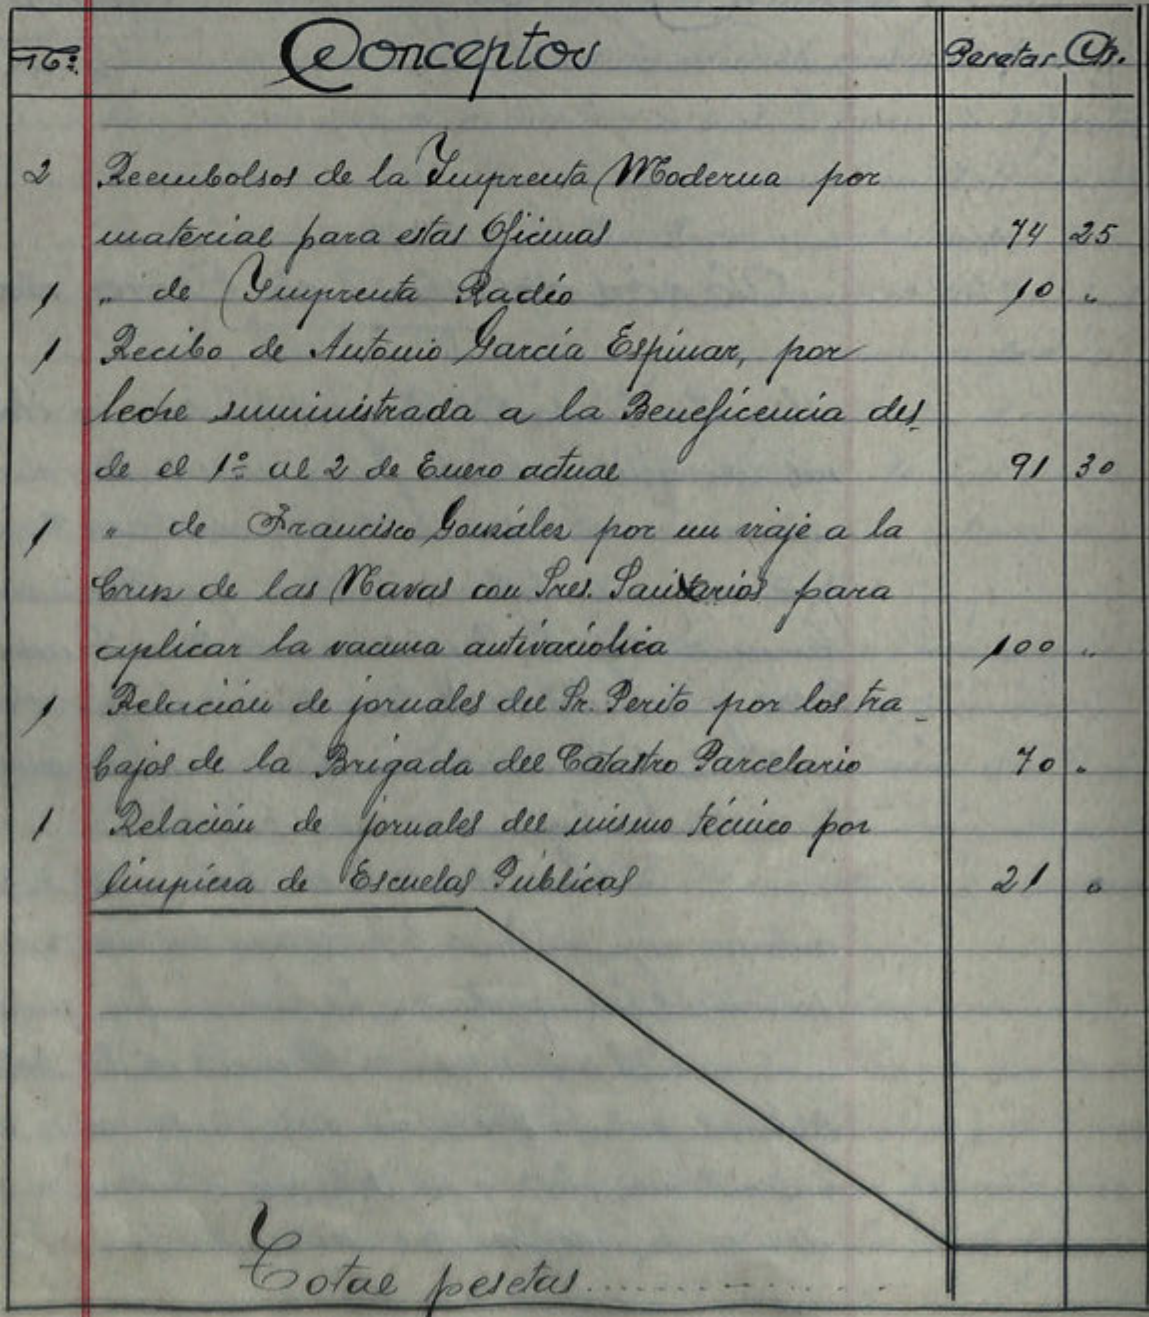 Nº Conceptos Pesetas Cts.
2 Reembolsos de la Imprenta Moderna por
material para estas Oficinas 74 25
1 " de Imprenta Radio 10 "
1 Recibo de Antonio García Espinar, por
leche suministrada a la Beneficencia des-
de el 1º al 2 de Enero actual 91 30
1 " de Francisco González por un viaje a la
Cruz de las Navas con Sres. Sanitarios para
aplicar la vacuna antivariólica 100 "
1 Relación de jornales del Sr. Perito por los tra-
bajos de la Brigada del Catastro Parcelario 70 "
1 Relación de jornales del mismo técnico por
limpieza de Escuelas Públicas 21 "
Total pesetas..............